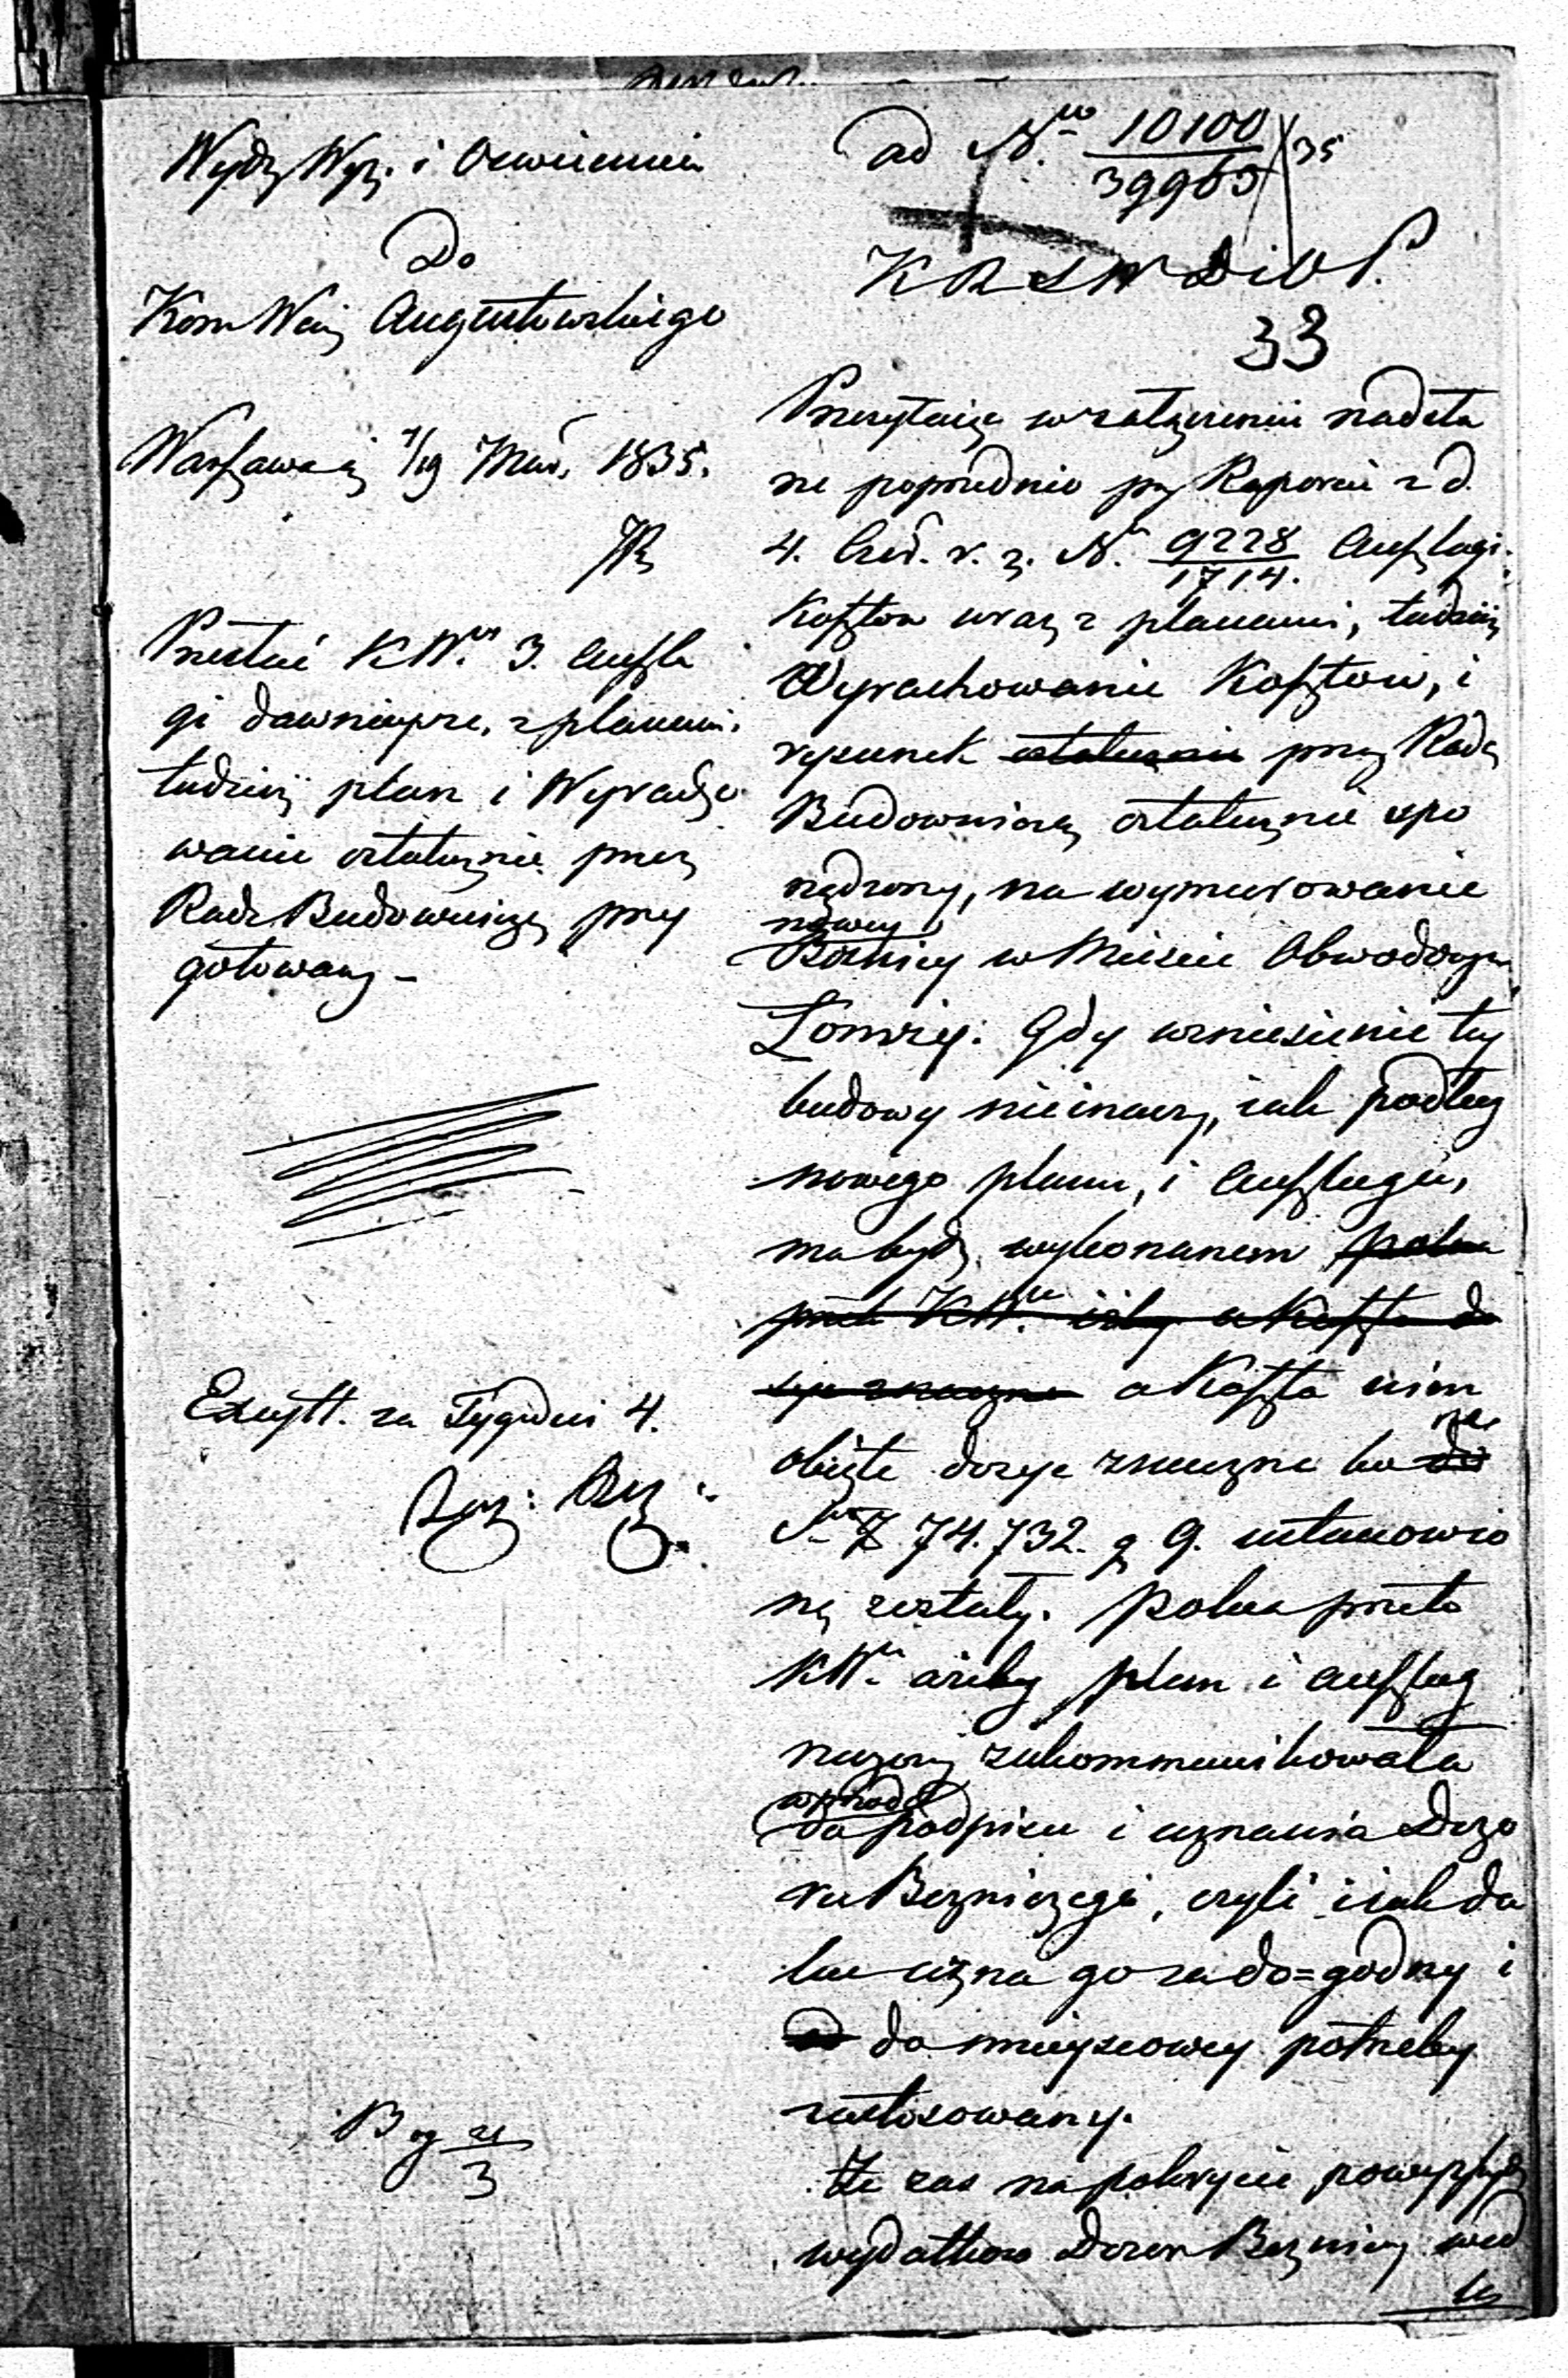 Wydz Wyz. i Oswiecenia
Do
Kom Woj Augustowskiego
Warszawa d 7/19 Mar. 1835.
Przesłać KWu 3. Anszla
gi dawniejsze, z planami,
tudzież plan i Wyracho
wanie ostatecznie przez
Radę Budowniczą przy
gotowany –
Exityt. za Tygodni 4.
ad Nro 10100/39963 /35
K R S W D i O P.
33
Przesyłając w załączeniu nadesła
ne poprzednio przy Raporcie z d.
4. Czer. r. z. N. 9228/1714. Anszlagi
Kosztow wraz z planami, tudzież
Wyrachowanie Kosztow, i
rysunek ostatecznie przez Radę
Budowniczą ostatecznie spo
rządzony, na wymurowanie
nowey
Bożnicy w Mieście Obwodowym
Łomży. Gdy wzniesienie tey
budowy nieinaczey, iak podług
nowego planu, i Anszlagu,
ma bydź wykonanem poleca
przeto KWu iżby a Koszta do
syć znaczne a Koszta nim
objęte dosyć znaczne bo do
na
Złp 74.732. g 9. ustanowio
ne zostały. Poleca przeto
KWu ażeby plan i anszlag
rzeczony zakommunikowała
wprzód
do podpisu i uznania Dozo
ru Bożniczego, czyli i iak da
lece uzna go za do=godny i
do mieyscowey potrzeby
zastosowany.
Że zas na pokrycie powyższych
wydatkow Dozor Bożniczy wed